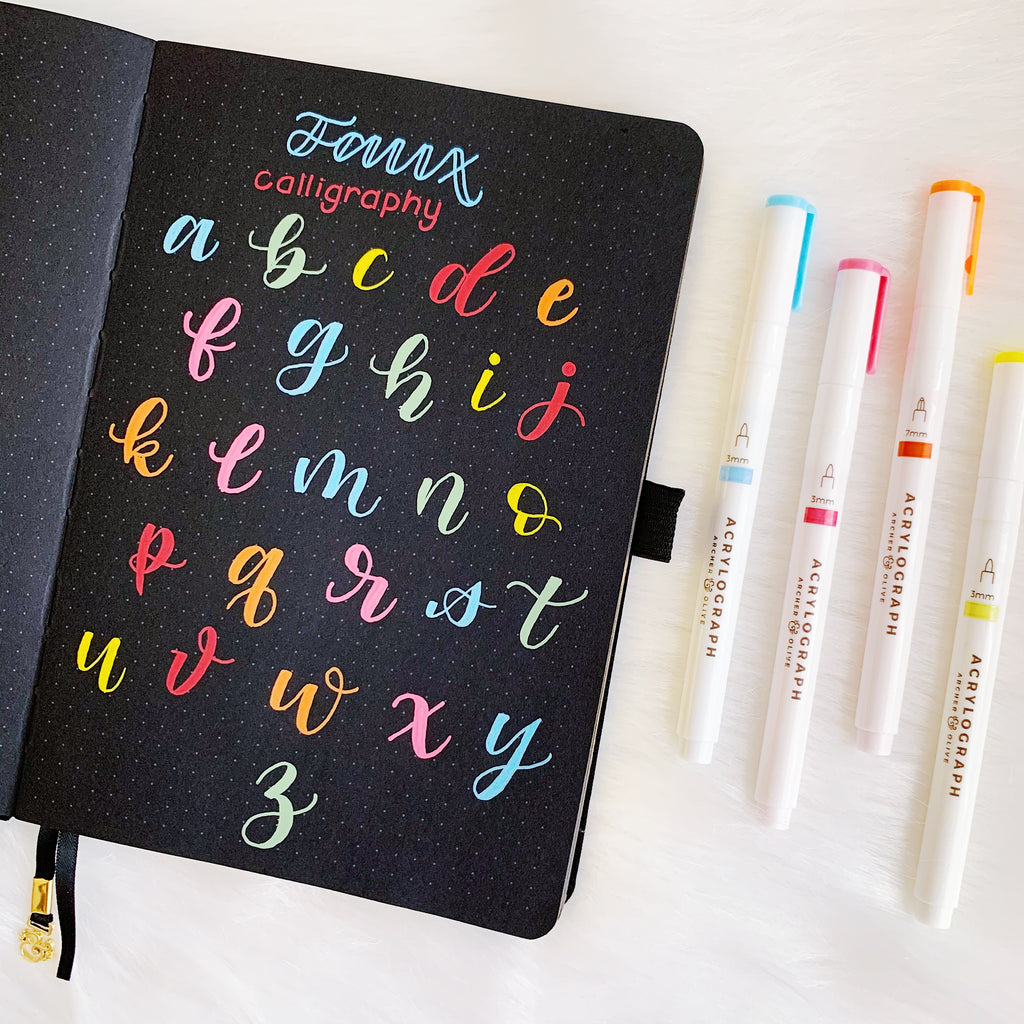 Faux
calligraphy
a b c d e
f g h i j
k l m n o
p q r s t
u v w x y
z
3mm
ACRYLOGRAPH
ARCHER & OLIVE
3mm
ACRYLOGRAPH
ARCHER & OLIVE
7mm
ACRYLOGRAPH
ARCHER & OLIVE
3mm
ACRYLOGRAPH
ARCHER & OLIVE